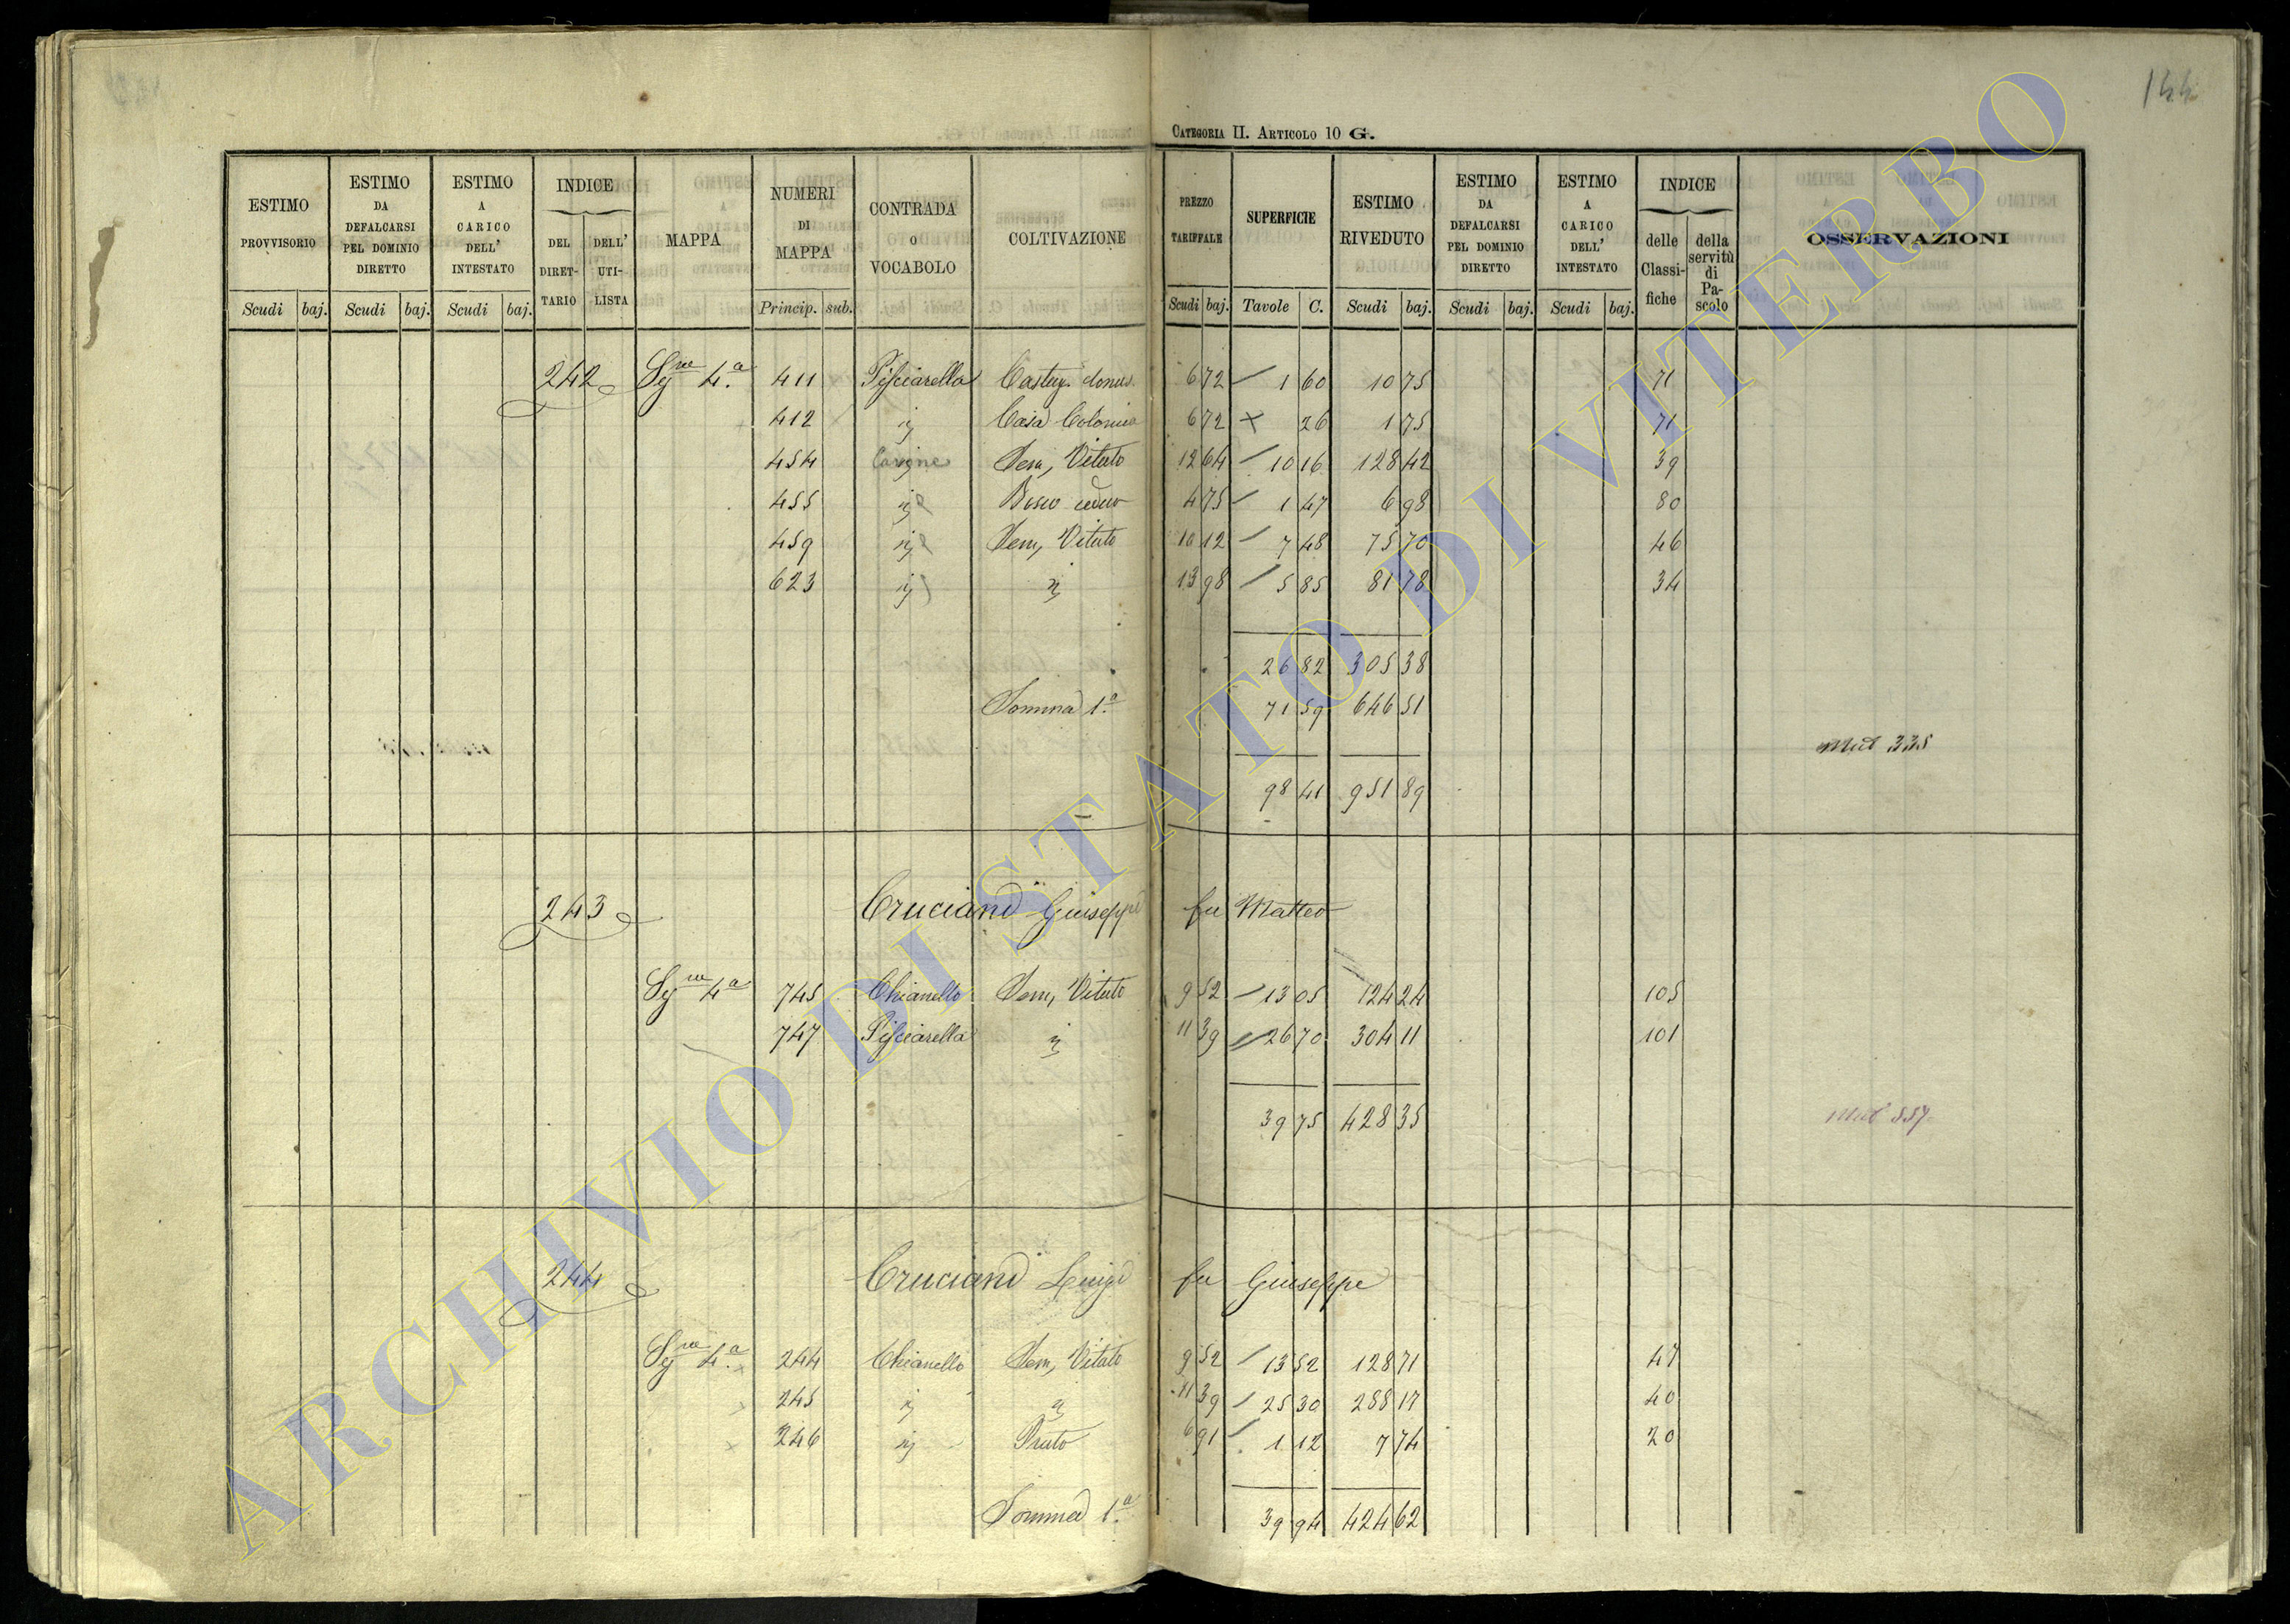 144
CATEGORIA II. ARTICOLO 10 G.
ESTIMO PROVVISORIO Scudi baj.
ESTIMO DA DEFALCARSI PEL DOMINIO DIRETTO Scudi baj.
ESTIMO A CARICO DELL' INTESTATO Scudi baj.
INDICE DEL DIRETTARIO DELL' UTILISTA
MAPPA
NUMERI DI MAPPA Princip. sub.
CONTRADA O VOCABOLO
COLTIVAZIONE
PREZZO TARIFFALE Scudi baj.
SUPERFICIE Tavole C.
ESTIMO RIVEDUTO Scudi baj.
ESTIMO DA DEFALCARSI PEL DOMINIO DIRETTO Scudi baj.
ESTIMO A CARICO DELL' INTESTATO Scudi baj.
INDICE delle Classifiche della servitù di Pascolo
OSSERVAZIONI
242 Sez.ne 4.a 411 Pisciarella Castag. domes. 6 72 1 60 10 75 71
412 ij Casa Colonica 6 72 26 1 75 71
454 Sem, Vitato 12 64 10 16 128 42 39
455 ij Bosco ceduo 4 75 1 47 6 98 80
459 ij Sem, Vitato 10 12 7 48 75 70 46
623 ij ij 13 98 5 85 81 78 34
26 82 305 38
Somma 1.a 71 59 646 51
Mut 335
98 41 951 89
243 Cruciani Giuseppe fu Matteo
Sez.ne 4.a 745 Chianello Sem, Vitato 9 52 13 05 124 24 105
747 Pisciarella ij 11 39 26 70 304 11 101
39 75 428 35
Mut 557
244 Cruciani Luigi fu Giuseppe
Sez.ne 4.a 244 Chianello Sem, Vitato 9 52 13 52 128 71 47
245 ij ij 11 39 25 30 288 17 40
246 ij Prato 6 91 1 12 7 74 20
Somma 1.a 39 94 424 62
ARCHIVIO DI STATO DI VITERBO